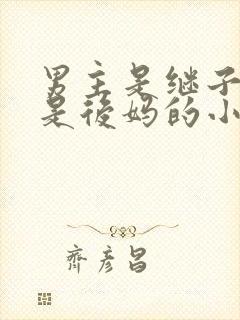 男主是继子
是後妈的小
齊彦昌